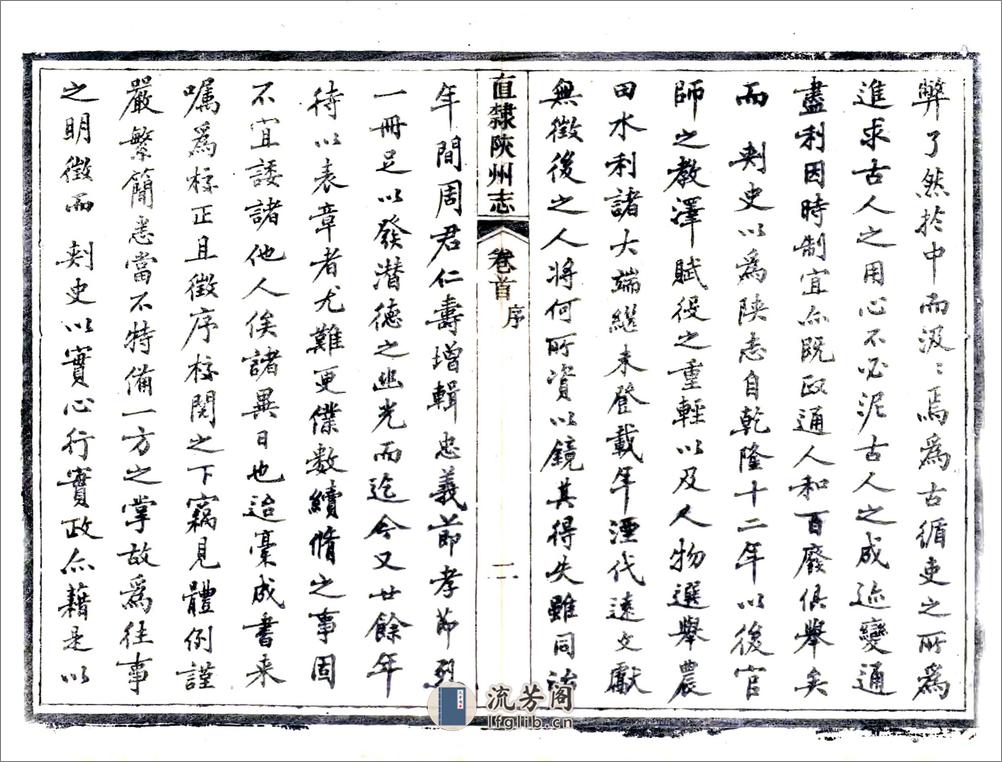 弊了然於中而汲〻焉為古循吏之所為
進求古人之用心不必泥古人之成迹變通
盡利因時制宜亦既政通人和百廢俱舉矣
而 刺史以為陝志自乾隆十二年以後官
師之教澤賦役之重輕以及人物選舉農
田水利諸大端繼未登載年湮代遠文獻
無徵後之人將何所資以鏡其得失雖同治
直隸陝州志 卷首 序 二
年間周君仁壽增輯忠義節孝節烈
一冊足以發潛德之幽光而迄今又廿餘年
待以表章者尤難更僕數續脩之事固
不宜諉諸他人俟諸異日也迨稾成書来
囑為校正且徵序校閱之下竊見體例謹
嚴繁簡悉當不特備一方之掌故為往事
之明徵而 刺史以實心行實政亦藉是以
流芳阁
lfglib.cn